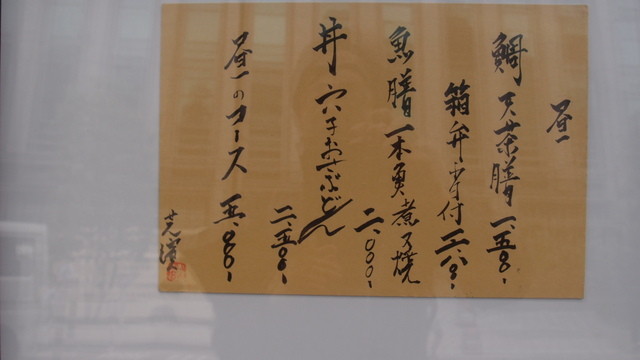 昼
鯛 天茶膳 一、五〇〇、
箱弁当 付 二、八〇〇、
魚膳 一本勇 煮つ焼 二、〇〇〇、
丼 穴子おさぶどん
二、五〇〇、
昼のコース 五、〇〇〇、